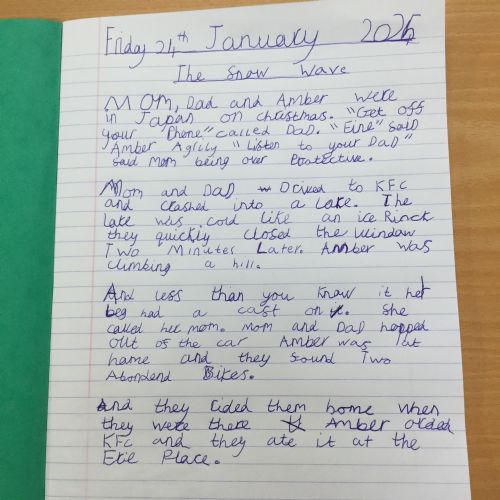 Friday 24th January 2025
The Snow Wave
Mom, Dad and Amber were
in Japan on christmas. "Get off
your Phone" called Dad. "Fine" said
Amber Agrily "Listen to your Dad"
said mom being over Protective.
Mom and Dad Drived to KFC
and crashed into a lake. The
lake was cold like an ice Rinck
they quickly closed the window
Two Minutes Later. Amber was
climbing a hill.
And less than you know it her
leg had a cast on it. She
called her mom. mom and Dad hopped
out of the car Amber was at
home and they found Two
Abondend Bikes.
And they rided them home when
they were there Amber orded
KFC and they ate it at the
Fire Place.